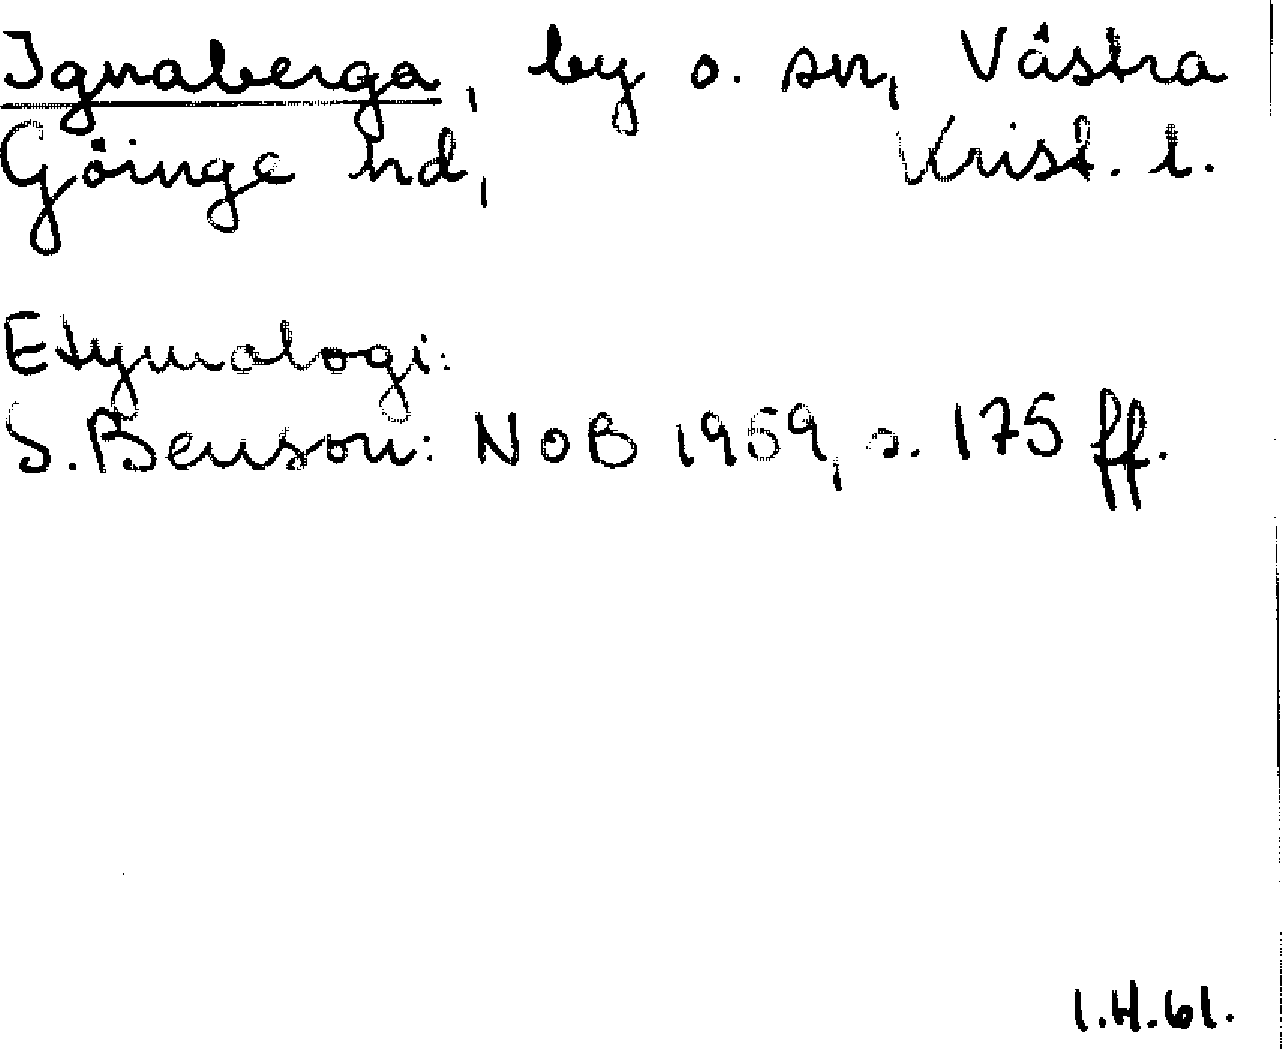 Ignaberga, by o. sn, Västra
Göinge hd, Krist. l.
Etymologi:
S. Benson: NoB 1959, s. 175 ff.
I.H.61.